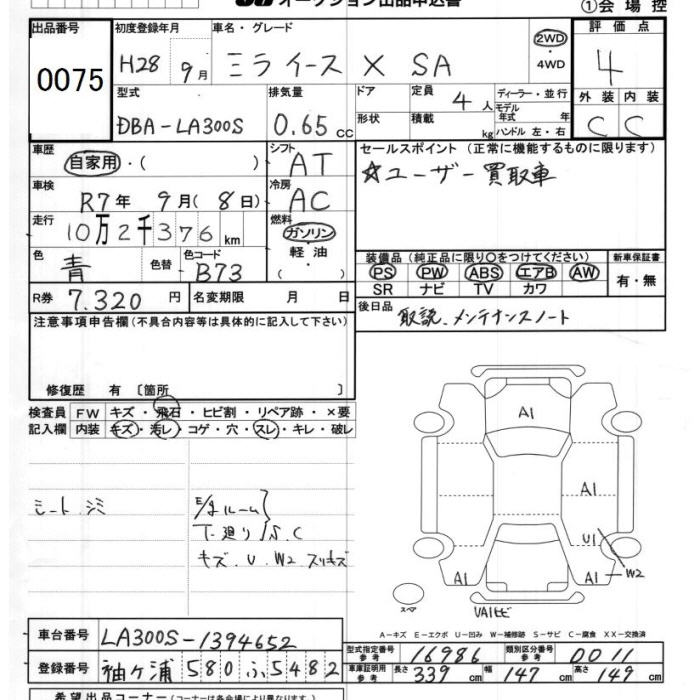 オークション出品申込書 ①会場控
出品番号 初度登録年月 車名・グレード 評価点
0075 H28 9月 ミライース X SA 2WD・4WD 4
型式 排気量 ドア 定員 4人 ディーラー・並行 外装 内装
DBA-LA300S 0.65 cc 形状 積載 kg モデル年式 年 ハンドル 左・右 C C
車歴 シフト セールスポイント(正常に機能するものに限ります)
自家用・( ) AT ☆ユーザー買取車
車検 冷房
R7年 9月(8日) AC
走行 燃料
10万2千376km ガソリン
色 色替 色コード 軽油 装備品(純正品に限り○をつけてください) 新車保証書
青 B73 ( ) PS PW ABS エアB AW 有・無
SR ナビ TV カワ
R券 7.320円 名変期限 月 日 後日品 取説、メンテナンスノート
注意事項申告欄(不具合内容等は具体的に記入して下さい)
修復歴 有 〔箇所 〕
検査員 FW キズ・飛石・ヒビ割・リペア跡・×要
記入欄 内装 キズ・汚レ・コゲ・穴・スレ・キレ・破レ
A1
シートシミ ルーム
A1
下廻りS.C
U1
キズ.U.W2.スリキズ
A1 A1 W2
スペア VA1ヒビ
A-キズ E-エクボ U-凹み W-補修跡 S-サビ C-腐食 XX-交換済
車台番号 LA300S-1394652
型式指定番号 参考 16986 類別区分番号 参考 0011
登録番号 袖ヶ浦 580 ふ 5482
車庫証明用 参考 長さ 339cm 幅 147cm 高さ 149cm
希望出品コーナー(コーナーは各会場により異なります)